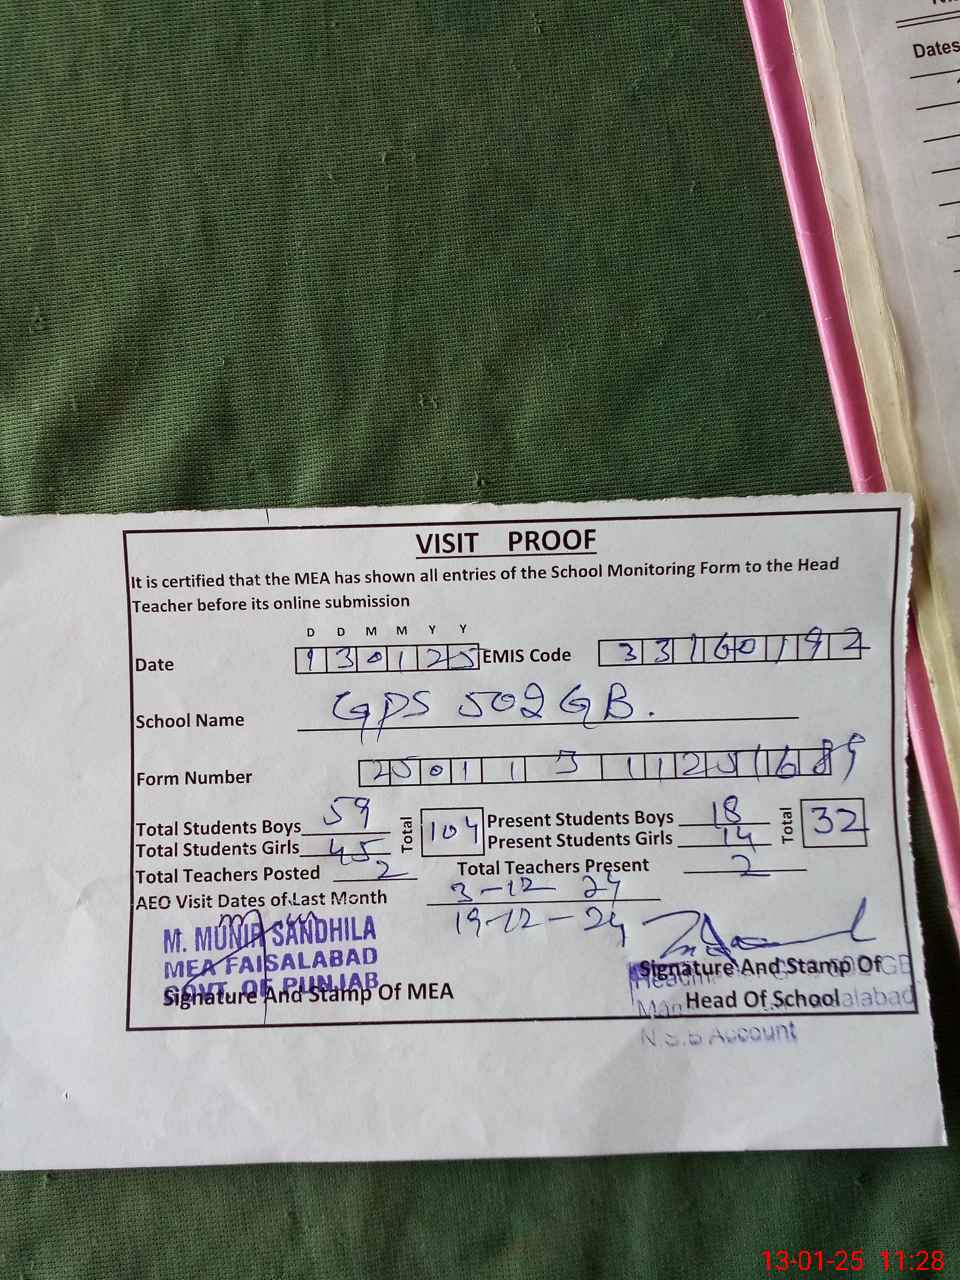 Dates
VISIT PROOF
It is certified that the MEA has shown all entries of the School Monitoring Form to the Head
Teacher before its online submission
D D M M Y Y
Date 130125 EMIS Code 33160192
School Name GPS 502 GB.
Form Number
Total Students Boys 59 Total 104 Present Students Boys 18 Total 32
Total Students Girls 45 Present Students Girls 14
Total Teachers Posted 2 Total Teachers Present 2
AEO Visit Dates of Last Month 3-12 24
19-12-24
M. MUNIR SANDHILA
MEA FAISALABAD
GOVT. OF PUNJAB
Signature And Stamp Of MEA
Signature And Stamp Of
Head Of School
N.S.B Account
13-01-25 11:28